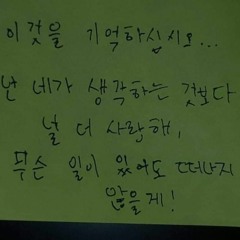 이것을 기억하십시오...
넌 네가 생각하는 것보다
널 더 사랑해,
무슨 일이 있어도 떠나지
않을게!